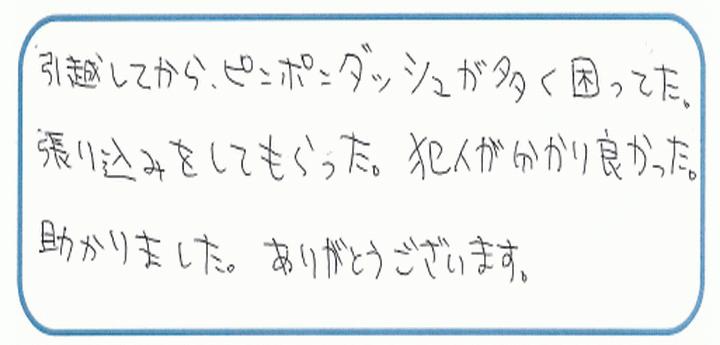 引越してから、ピンポンダッシュが多く困ってた。
張り込みをしてもらった。犯人が分かり良かった。
助かりました。ありがとうございます。